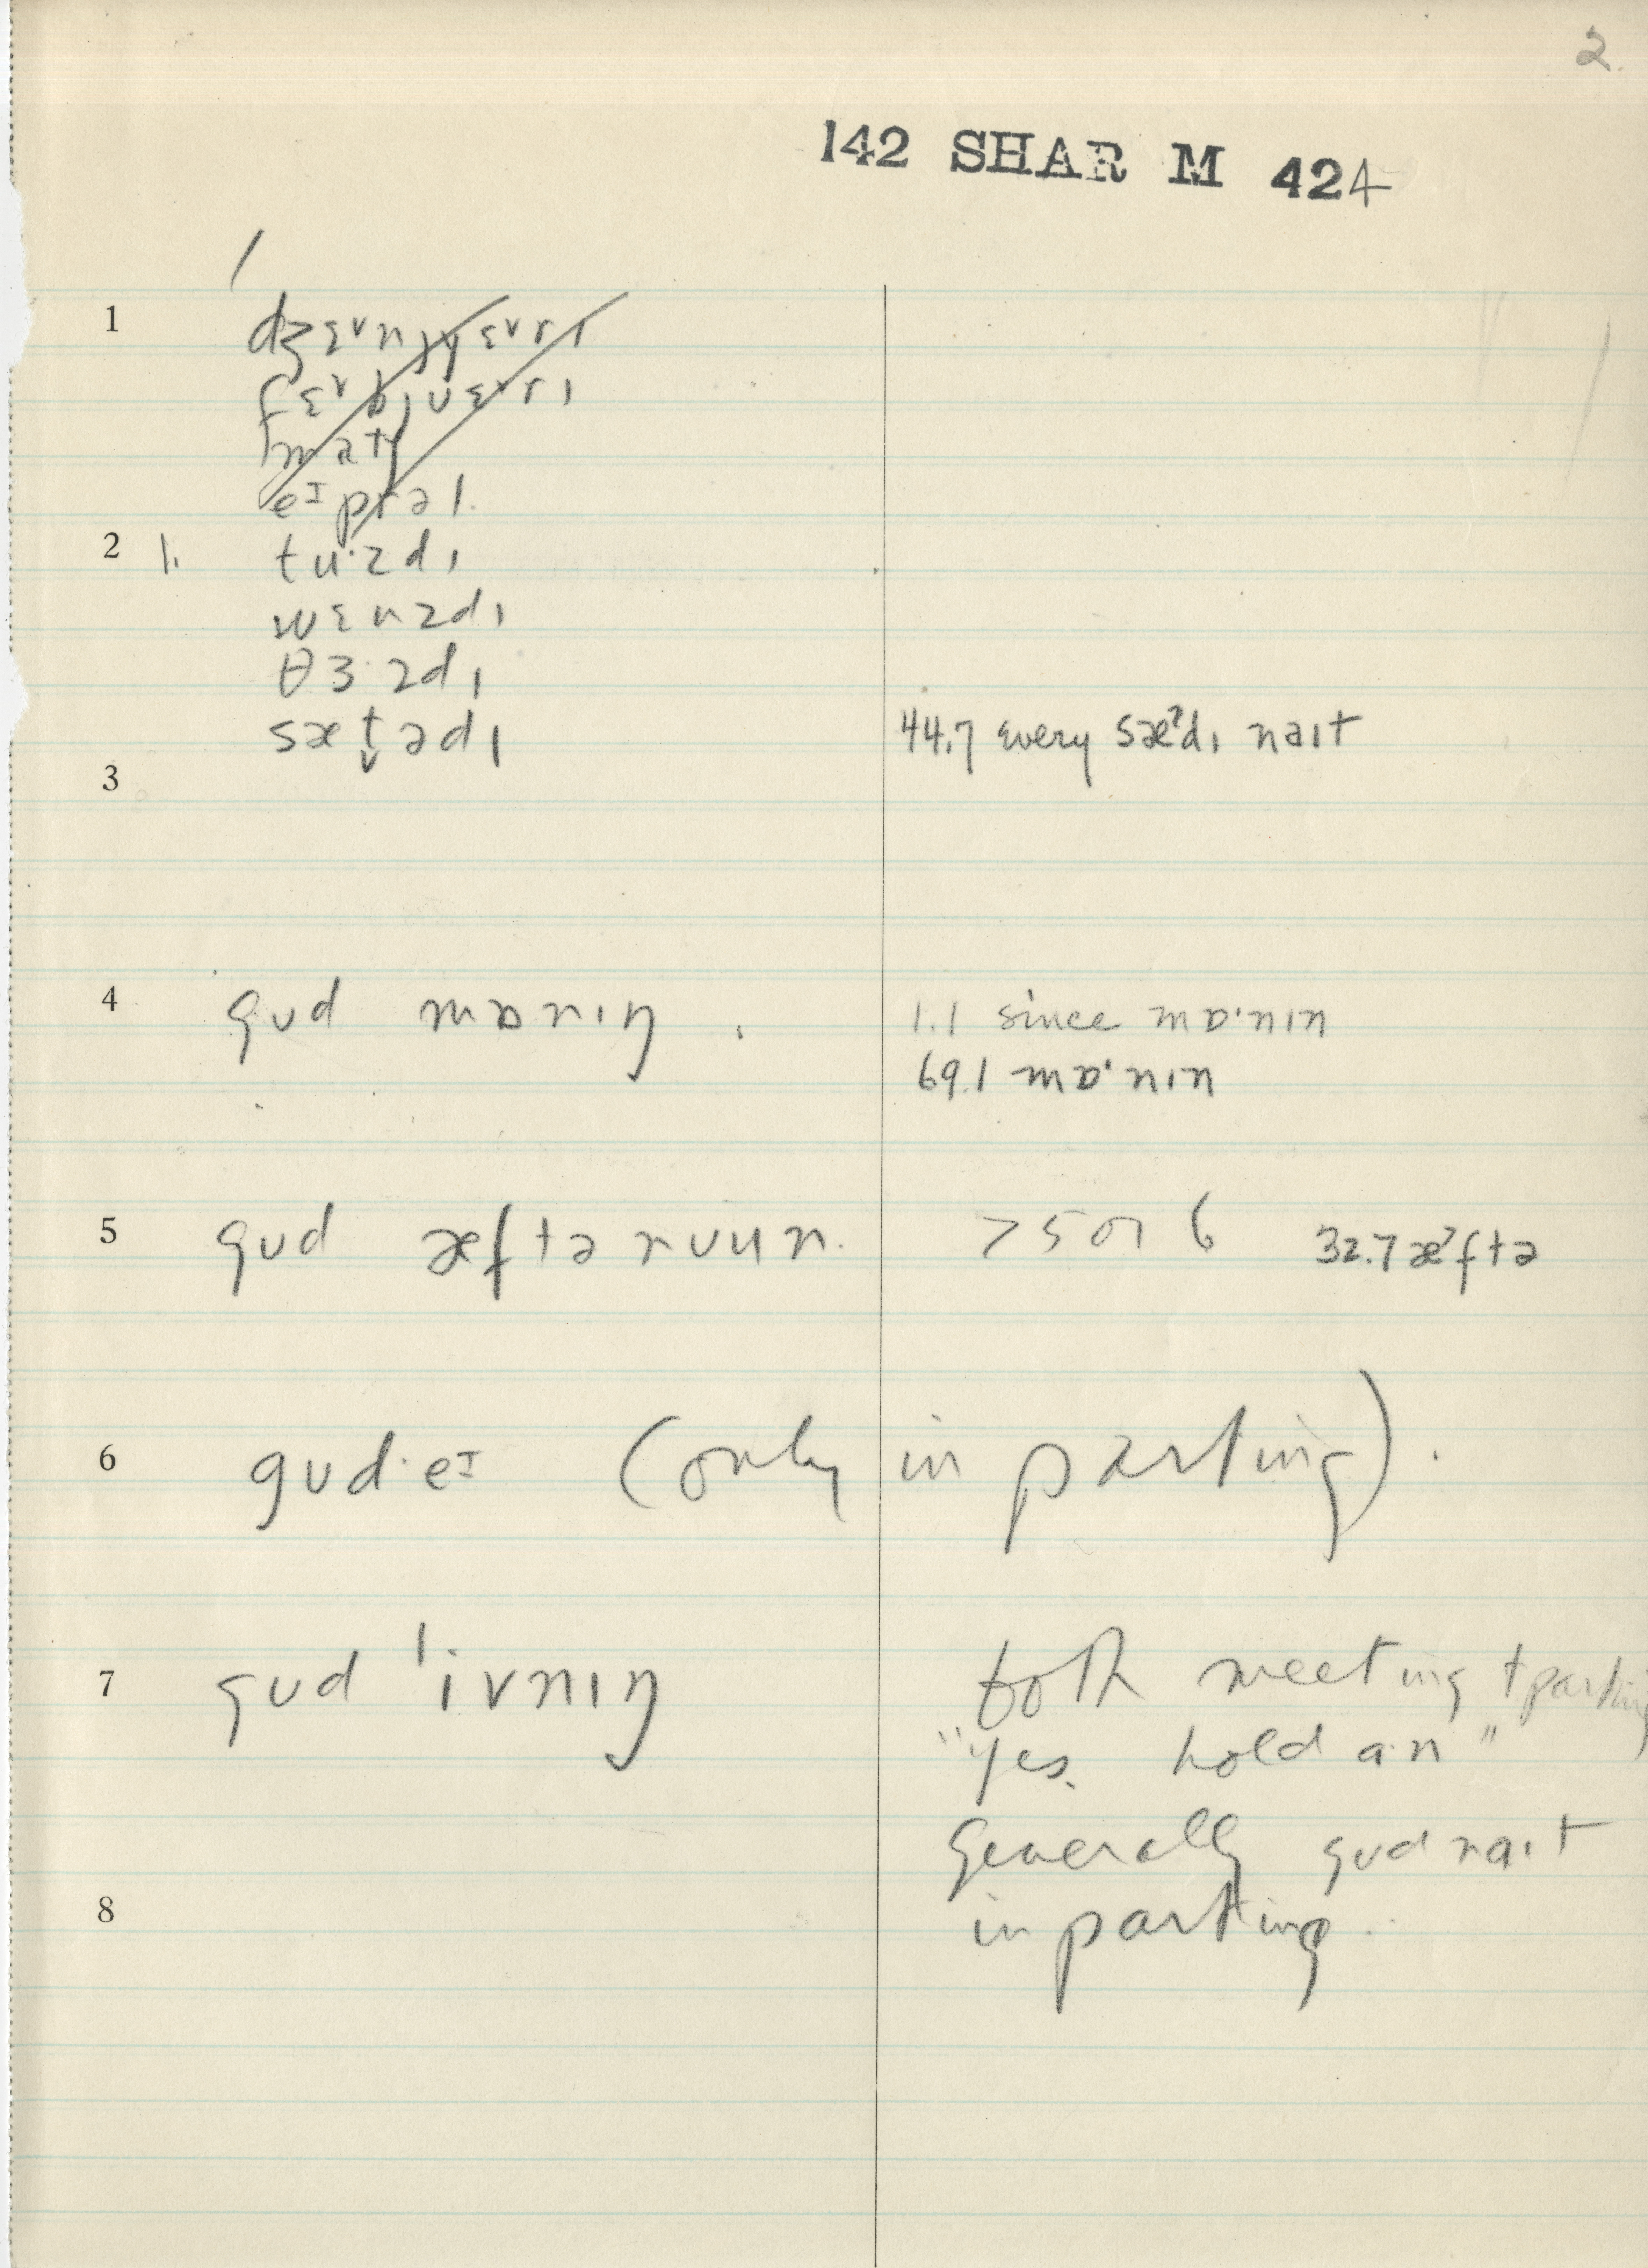 2.
142 SHAR M 424
1
dʒɛᵛnjʏɛᵛrɪ
fɛᵛbjuɛᵛrɪ
matʃ
eᴵprəl.
2 1. tu·zdɪ
wɛnzdɪ
θɜ·zdɪ
sæt̬ədɪ 44.7 every sæˀdɪ naɪt
3
4 gud mɒnɪŋ . 1.1 since mɒ·nɪn
69.1 mɒ·nɪn
5 gud æftənuun. > 5 or 6 32.7 æˀftə
6 gud·eᴵ (only in parting).
7 gud ˈivnɪŋ both meeting + parting
"yes. hold a·n"
Generally gud naɪt
8 in parting.